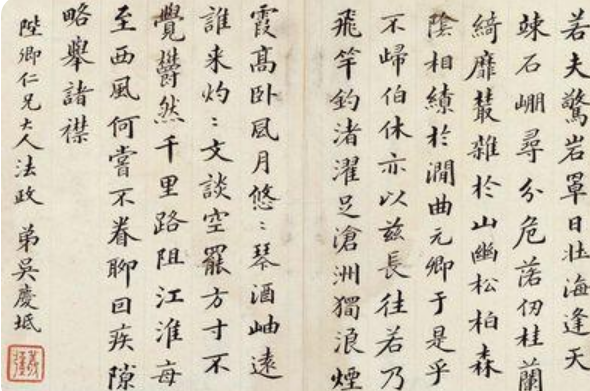 若夫驚岩罩日壯海逢天
竦石崩尋分危落仞桂蘭
綺靡叢雜於山幽松柏森
陰相繚於澗曲元卿于是乎
不歸伯休亦以茲長往若乃
飛竿釣渚濯足滄洲獨浪煙
霞高卧風月悠〻琴酒岫遠
誰来灼〻文談空罷方寸不
覺欝然千里路阻江淮每
至西風何嘗不眷聊囙疾隙
略舉諸襟
陛卿仁兄大人法政 弟吳慶坻